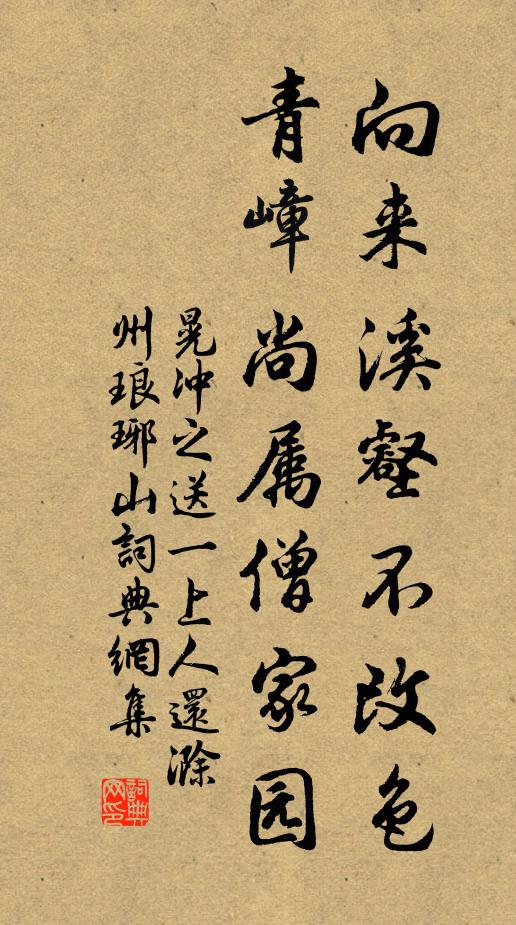 向来溪壑不改色
青嶂尚属僧家园
晁冲之送一上人還滁
州琅琊山詞典網集
詞典网印